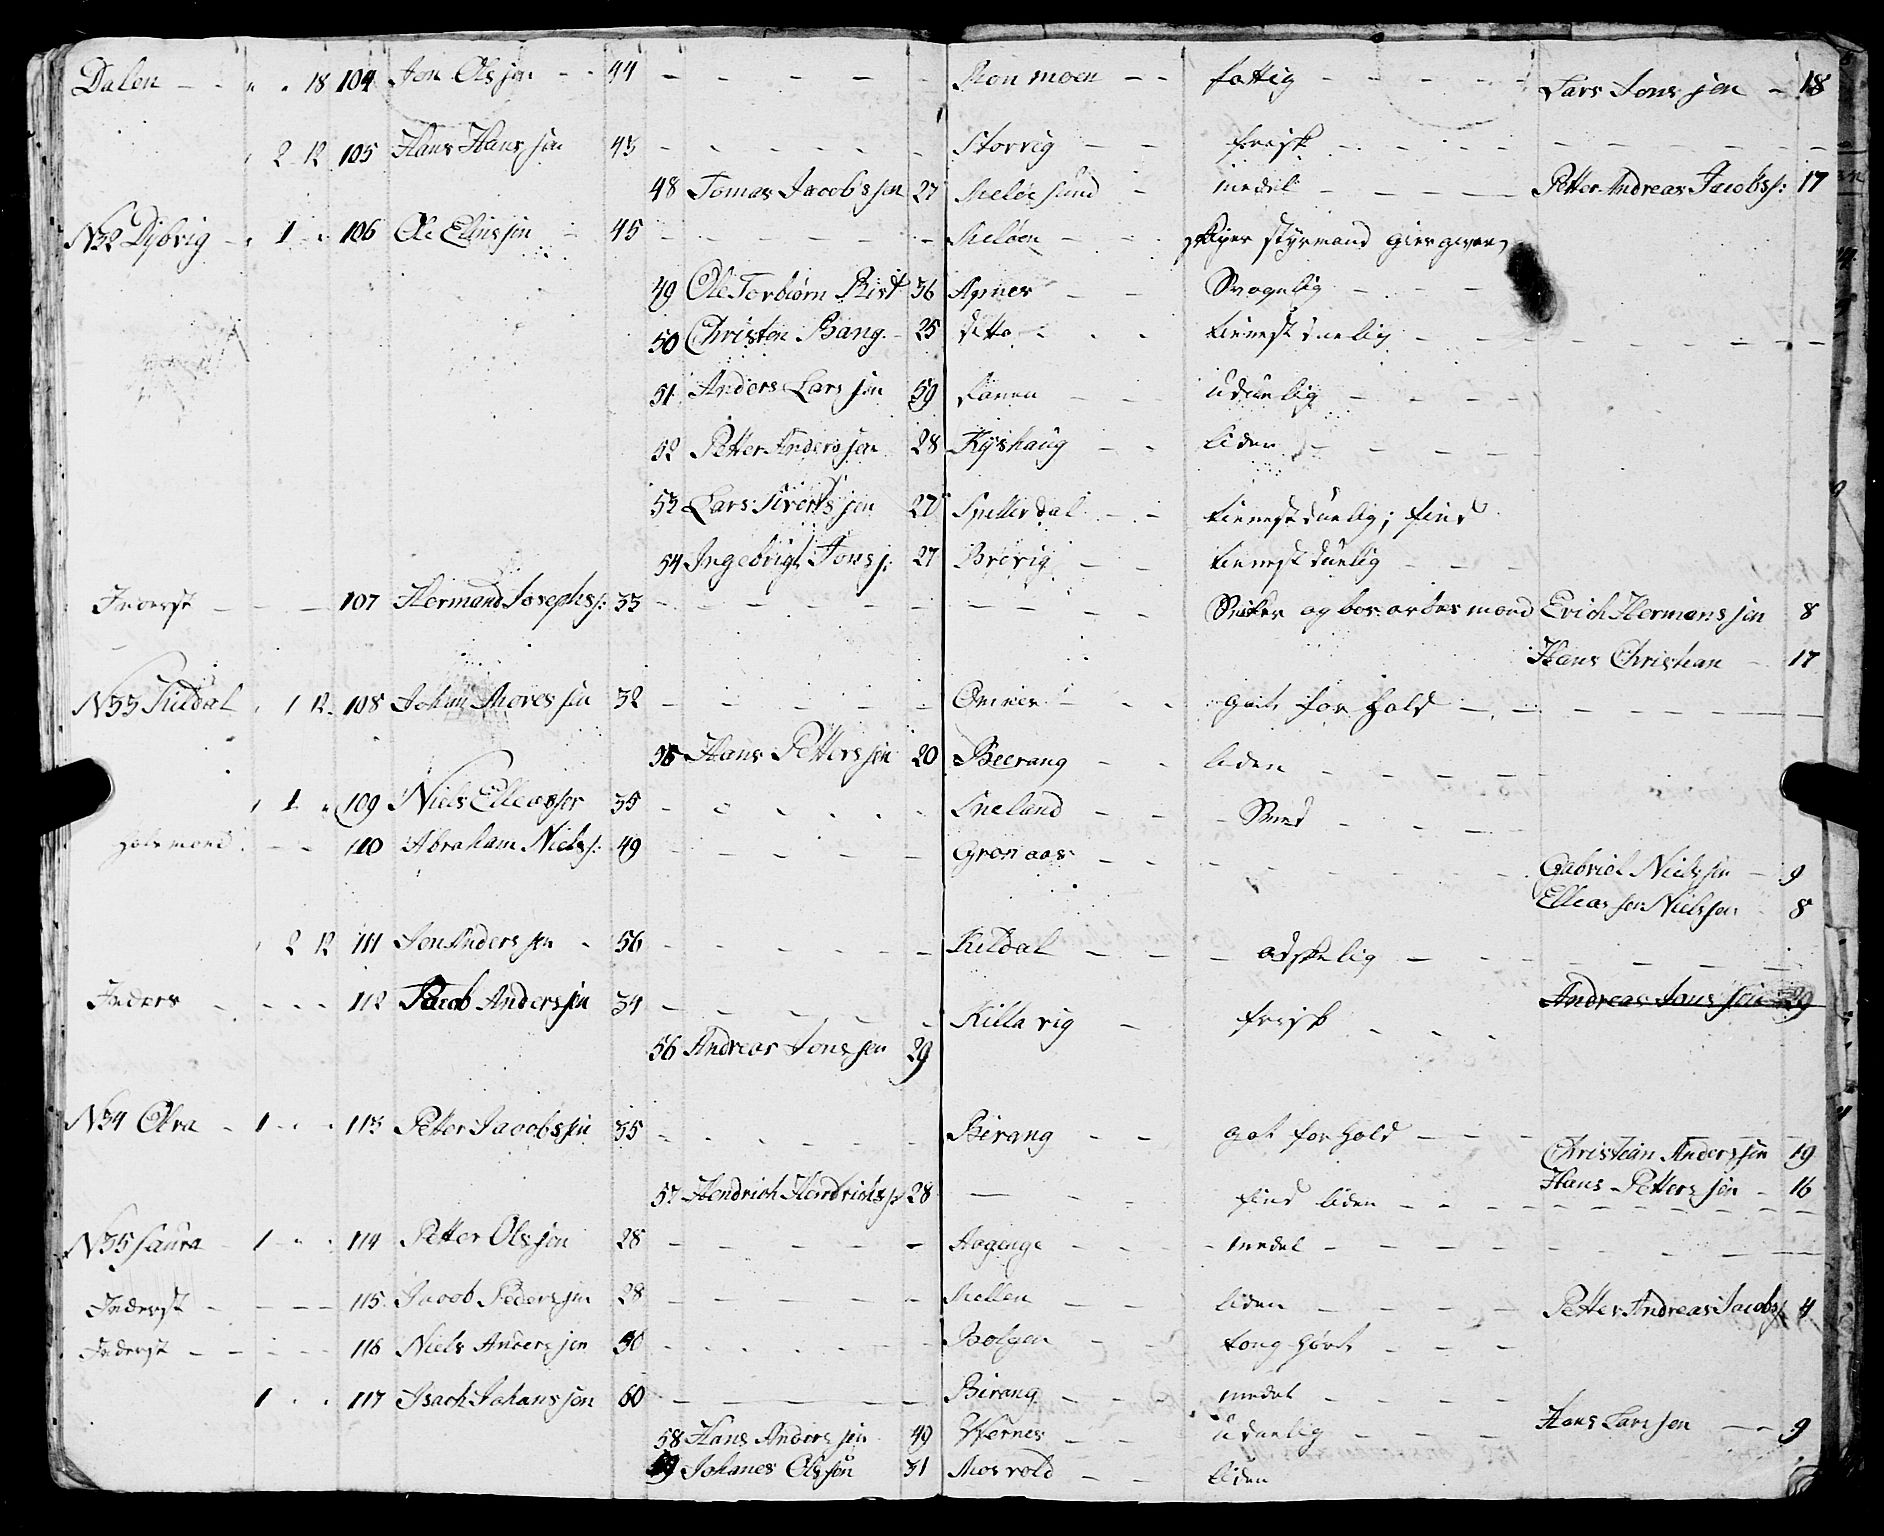 Dalen - - " " 18 104 Jon Olssen - - 44 - - - - - Monmoen - - fattig - - - - Lars Jonssen - 18
" 2 12 105 Hans Hanssen 43 - - - - - Storvig - - frisk - - - -
48 Tomas Jacobssen 27 Meløesund - medel - - - - Petter Andreas Jacobs: 17
N32 Dybvig - " 1 " 106 Ole Eliassen 45 - - - - - Meløen - - styrmand
49 Ole Torbiørn Rist 36 Apnes - - Svagelig - - -
50 Christen Bang - 25 ditto - - - tienestduelig - - - -
51 Anders Larssen 59 Ranen - - uduelig - - - -
52 Petter Anderssen 28 Kyshaug - - liden - - - -
53 Lars Sivertssen 27 Spillerdal - - tienestduelig; find
54 Ingebrigt Jons: 27 Brevig - - tienestduelig - - -
Inderst - - - 107 Hermand Josephs: 33 - - - - - Erich Hermanssen 8
Hans Christian - 17
N33 Kildal " 1 12 108 Johan Movessen 32 - - - - - Omnes - - - got forhold - - - -
55 Hans Petterssen 20 Beerang - - liden - - - -
" 1 " 109 Niels Elleassen 35 - - - - - Sneland - - - Smed - - - -
Holsmand - - 110 Abraham Niels: 49 - - - - - Grønaas - - -
Gabriel Nielssen - 9
Elleas Nielssen - 8
" 2 12 111 Jon Anderssen - 56 - - - - - Kildal - - - adskelig - - - -
Inders - - - - 112 Jacob Anderssen 34 - - - - - Killavig - frisk - - - Andreas Jonssen 29
56 Andreas Jonssen 29
N34 Olra - 1 " " 113 Petter Jacobssen 35 - - - - - Berang - - got forhold - - -
Christian Anderssen 19
57 Hendrich Hendrichs: 28 - - - find liden - - - Hans Petterssen - 16
N35 Saura - 1 " " 114 Petter Olssen 28 - - - - - Aagenge - - - medel - - - -
Inderst - - - - 115 Jacob Pederssen 28 - - - - - Mellen - - liden - - - - Petter Andreas Jacobs: 4
Inderst - - - - 116 Niels Anderssen 30 - - - - - Bolgen - - tonghørt - - -
1 " " 117 Isach Johanssen 60 - - - - - Berang - - - medel - - - -
58 Hans Anderssen 49 Værnes - - uduelig - - - - Hans Larssen - - 9
59 Johanes Olssøn 31 Mosvold - - liden